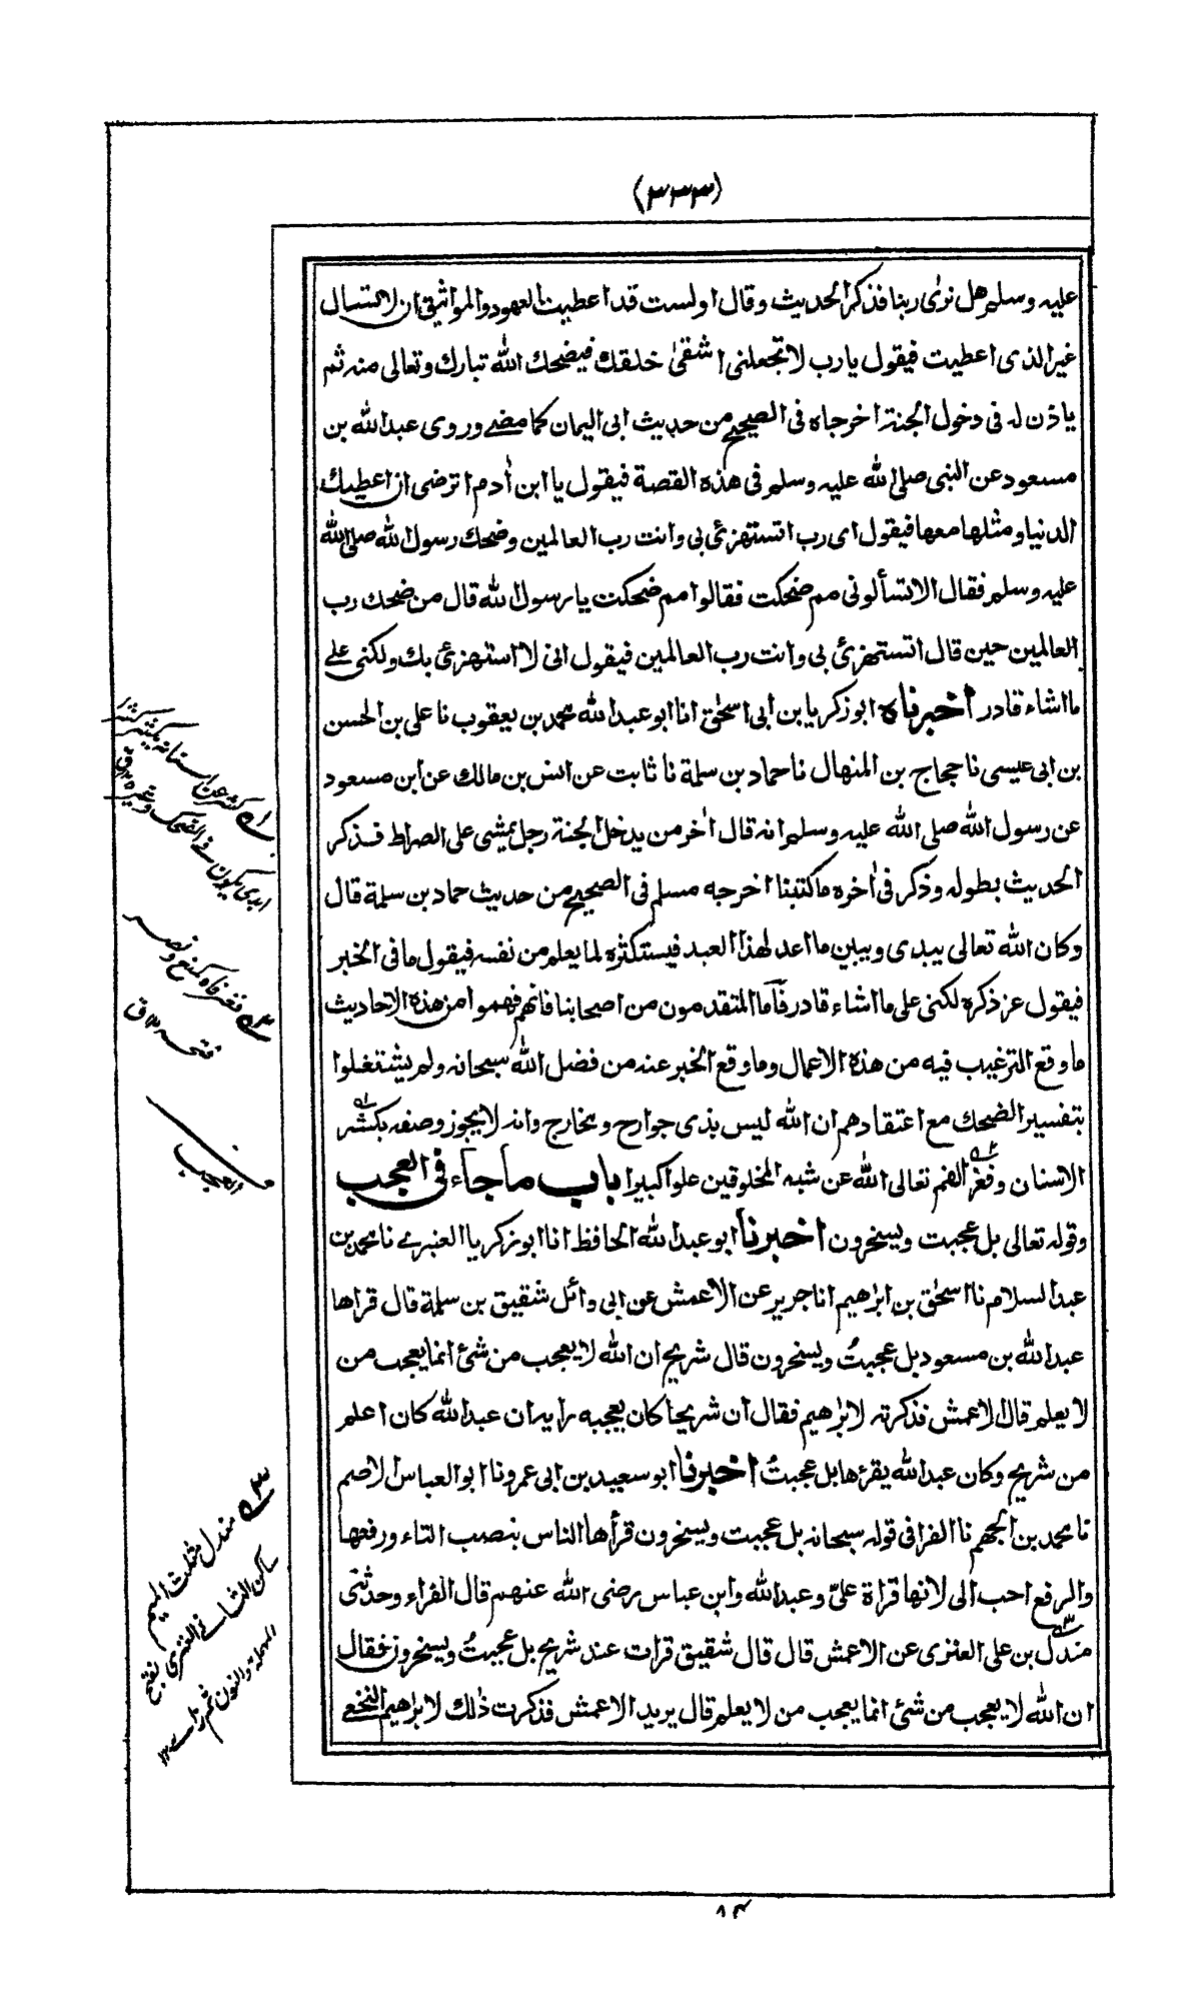 (٣٣٣)
عليه وسلم هل نرى ربنا فذكر الحديث وقال اولست قد اعطيت العهود والمواثيق ان لا تسال
غير الذى اعطيت فيقول يارب لا تجعلنى اشقىٰ خلقك فيضحك الله تبارك وتعالى منه ثم
ياذن له فى دخول الجنة اخرجاه فى الصحيح من حديث ابى اليمان كما مضے وروى عبد الله بن
مسعود عن النبى صلى الله عليه وسلم فى هذه القصة فيقول يا ابن اٰدم اترضى ان اعطيك
الدنيا ومثلها معها فيقول اى رب اتستهزئ بى وانت رب العالمين وضحك رسول الله صلى الله
عليه وسلم فقال الا تسألونى مم ضحكت فقالوا مم ضحكت يا رسول الله قال من ضحك رب
العالمين حين قال اتستهزئ بى وانت رب العالمين فيقول انى لا استهزئ بك ولكنى علے
ما اشاء قادر اخبرناه ابو زكريا بن ابى اسحٰق انا ابو عبد الله محمد بن يعقوب نا على بن الحسن
بن ابى عيسى نا حجاج بن المنهال نا حماد بن سلمة نا ثابت عن انس بن مالك عن ابن مسعود
عن رسول الله صلى الله عليه وسلم انه قال اٰخر من يدخل الجنة رجل يمشى على الصراط فذكر
الحديث بطوله وذكر فى اٰخره ما كتبنا اخرجه مسلم فى الصحيح من حديث حماد بن سلمة قال
وكان الله تعالى يبدى ويبين ما اعد لهذا العبد فيستكثره لما يعلم من نفسه فيقول ما فى الخبر
فيقول عز ذكره لكنى على ما اشاء قادر فاما المتقدمون من اصحابنا فانهم فهموا من هذه الاحاديث
ما وقع الترغيب فيه من هذه الاعمال وما وقع الخبر عنه من فضل الله سبحانه ولم يشتغلوا
بتفسير الضحك مع اعتقادهم ان الله ليس بذى جوارح ومخارج وانه لا يجوز وصفه بكشر
الاسنان وفغر الفم تعالى الله عن شبه المخلوقين علوا كبيرا باب ما جاء فى العجب
وقوله تعالى بل عجبت ويسخرون اخبرنا ابو عبد الله الحافظ انا ابو زكريا العنبرے نا محمد بن
عبد السلام نا اسحٰق بن ابراهيم انا جرير عن الاعمش عن ابى وائل شقيق بن سلمة قال قراها
عبد الله بن مسعود بل عجبتُ ويسخرون قال شريح ان الله لا يعجب من شئ انما يعجب من
لا يعلم قال الاعمش فذكرته لابراهيم فقال ان شريحا كان يعجبه رايه ان عبد الله كان اعلم
من شريح وكان عبد الله يقرءها بل عجبتُ اخبرنا ابو سعيد بن ابى عمرو نا ابو العباس الاصم
نا محمد بن الجهم نا الفرا فى قوله سبحانه بل عجبت ويسخرون قرأها الناس بنصب التاء ورفعها
والرفع احب الى لانها قراة علىّ وعبد الله وابن عباس رضى الله عنهم قال الفراء وحدثنى
مندل بن على العنزى عن الاعمش قال قال شقيق قرات عند شريح بل عجبتُ ويسخرون فقال
ان الله لا يعجب من شئ انما يعجب من لا يعلم قال يريد الاعمش فذكرت ذٰلك لابراهيم النخعے
فغر فاه كمنع ونصر
فتحه ١٢ ق
العجب
مندل مثلث الميم
ساكن الثانے العنزى بفتح
المهملة والنون ثم زاے ١٢
٨٤